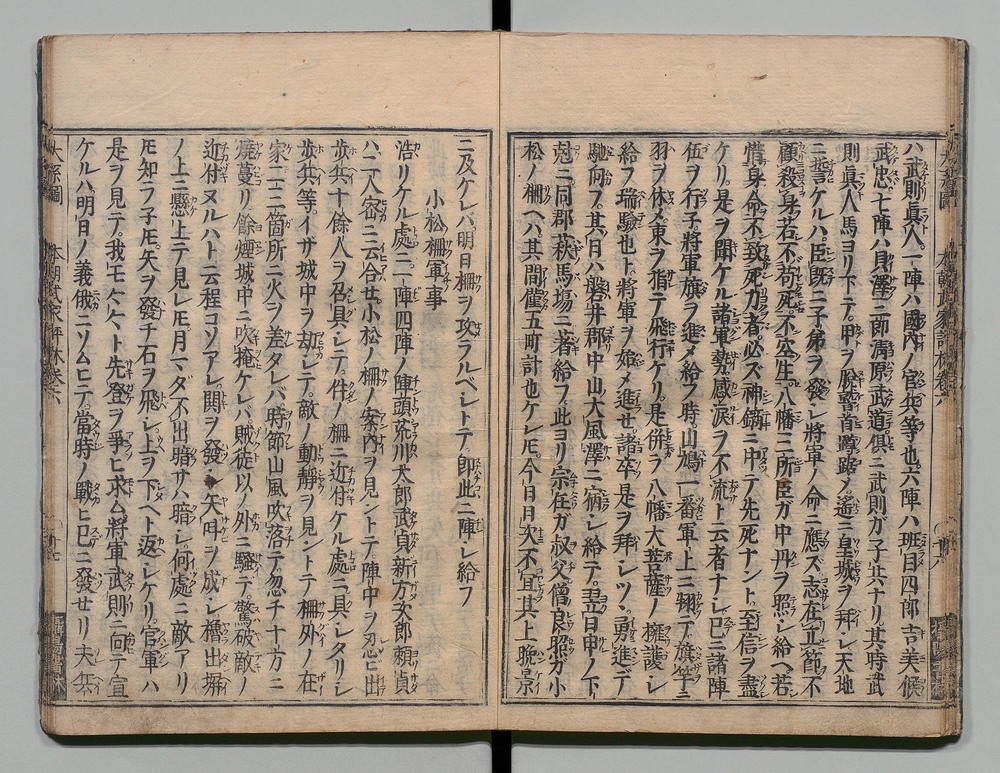 ハ武則眞人一陣ハ國内ノ官兵等也六陣ハ班目四郎吉美候
武忠七陣ハ貝澤三郎淸原武道倶ニ武則ガ子共ナリ其時武
則眞人馬ヨリ下テ甲ヲ脱警首蹲踞ノ遥ニ皇城ヲ拜シ天地
ニ誓ケルハ臣既ニ子弟ヲ發シ將軍ノ命ニ應ズ志在立節不
顧殺身若不苟死不空生八幡三所臣ガ中丹ヲ照シ給ヘ若
惜身命不致死力者必ズ神鏑ニ中テ先死ナント至信ヲ盡
ケリ是ヲ聞ケル諸軍勢感涙ヲ不流ト云者ナシ已ニ諸陣
伍ヲ行子將軍旗ヲ進メ給フ時山鳩一番軍上ニ翔テ旗竿ニ
羽ヲ休メ東ヲ指テ飛行ケリ是併ラ八幡大菩薩ノ擁護シ
給フ瑞驗也ト將軍ヲ始メ進セ諸卒是ヲ拜シツヽ勇進デ
馳向フ其日ハ磐井郡中山大風澤ニ宿シ給テ翌日申ノ下
尅ニ同郡萩馬塲ニ著給フ此ヨリ宗任ガ叔父僧良照ガ小
松ノ柵ヘハ其間僅五町計也ケレ𪜈今日日次不宜其上晩景
ニ及ケレバ明日柵ヲ攻ラルベシトテ即此ニ陣シ給フ
小松柵軍事
浩リケル處ニ二陣四陣ノ陣頭荒川太郎武貞新方次郎頼貞
ハ二人密ニ云合セ小松ノ柵ノ案内ヲ見ントテ陣中ヲ忍ビ出
歩兵十餘人ヲ召具シテ件ノ柵ニ近付ケル處ニ具シタリシ
歩兵等イザ城中ヲ劫シテ敵ノ動靜ヲ見ントテ柵外ノ在
家二三箇所ニ火ヲ差タレバ時節山風吹落テ忽チ十方ニ
燒蔓リ餘煙城中ニ吹掩ケレバ賊徒以ノ外ニ騷テ驚破敵ノ
近付ヌルハト云程コソアレ鬨ヲ發シ矢叫ヲ成シ櫓出塀
ノ上ニ懸上テ見レ𪜈月マダ不出暗サハ暗シ何處ニ敵アリ
𪜈知ラ子𪜈矢ヲ發チ石ヲ飛シ上ヲ下ヘト返シケリ官軍ハ
是ヲ見テ我モ〱ト先登ヲ爭ヒ求ム將軍武則ニ向テ宣
ケルハ明日ノ義俄ニソムヒテ當時ノ戰ヒ已ニ發セリ夫兵